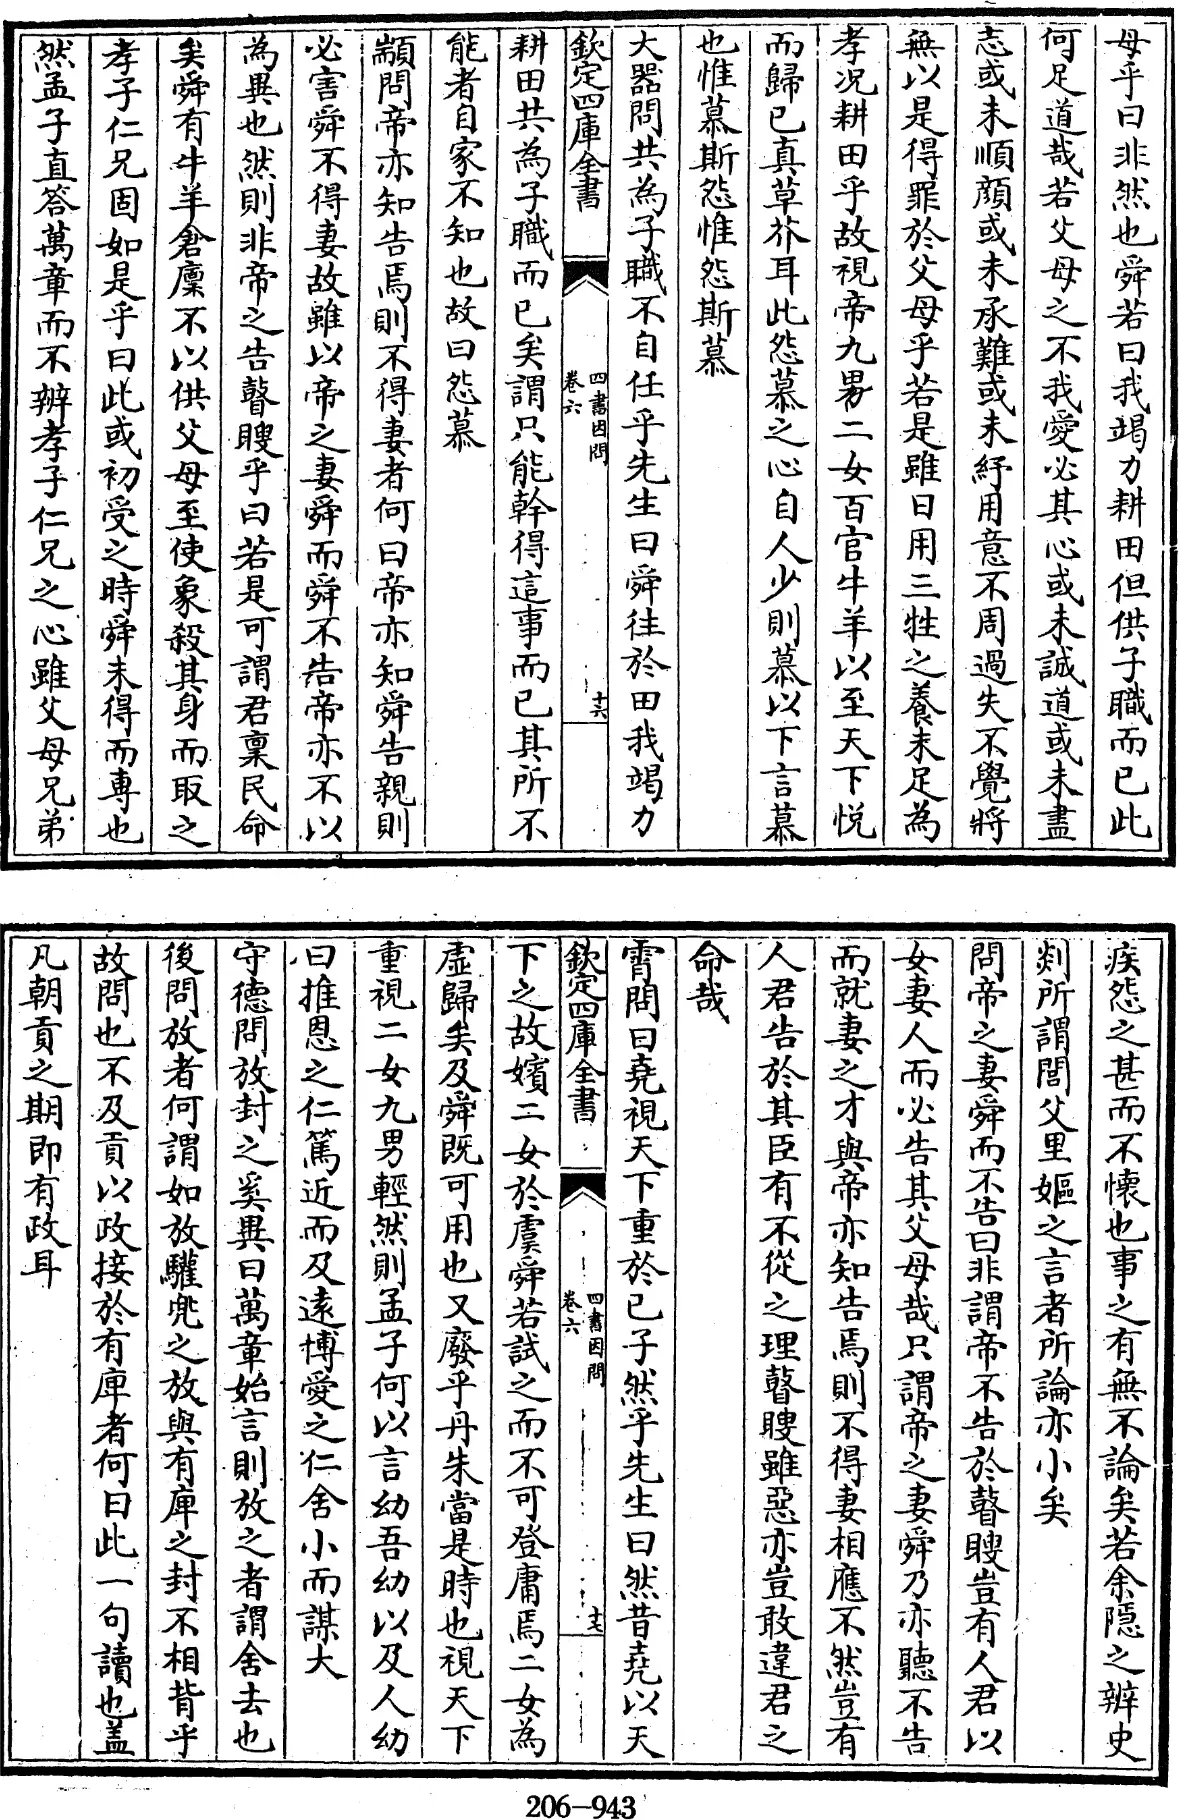 母乎曰非然也舜若曰我竭力耕田但供子職而已此
何足道哉若父母之不我愛必其心或未誠道或未盡
志或未順顏或未承難或未紓用意不周過失不覺將
無以是得罪於父母乎若是雖日用三牲之養未足為
孝况耕田乎故視帝九男二女百官牛羊以至天下悅
而歸已真草芥耳此怨慕之心自人少則慕以下言慕
也惟慕斯怨惟怨斯慕
大器問共為子職不自任乎先生曰舜往於田我竭力
欽定四庫全書
四書因問
卷六
十六
耕田共為子職而已矣謂只能幹得這事而已其所不
能者自家不知也故曰怨慕
顓問帝亦知告焉則不得妻者何曰帝亦知舜告親則
必害舜不得妻故雖以帝之妻舜而舜不告帝亦不以
為異也然則非帝之告瞽瞍乎曰若是可謂君稟民命
矣舜有牛羊倉廩不以供父母至使象殺其身而取之
孝子仁兄固如是乎曰此或初受之時舜未得而專也
然孟子直答萬章而不辨孝子仁兄之心雖父母兄弟
疾怨之甚而不懷也事之有無不論矣若余隱之辨史
剡所謂閭父里嫗之言者所論亦小矣
問帝之妻舜而不告曰非謂帝不告於瞽瞍豈有人君以
女妻人而必告其父母哉只謂帝之妻舜乃亦聽不告
而就妻之才與帝亦知告焉則不得妻相應不然豈有
人君告於其臣有不從之理瞽瞍雖惡亦豈敢違君之
命哉
霄問曰堯視天下重於已子然乎先生曰然昔堯以天
欽定四庫全書
四書因問
卷六
十七
下之故嬪二女於虞舜若試之而不可登庸焉二女為
虛歸矣及舜既可用也又廢乎丹朱當是時也視天下
重視二女九男輕然則孟子何以言幼吾幼以及人幼
曰推恩之仁篤近而及遠博愛之仁舍小而謀大
守德問放封之奚異曰萬章始言則放之者謂舍去也
後問放者何謂如放驩兜之放與有庳之封不相背乎
故問也不及貢以政接於有庳者何曰此一句讀也盖
凡朝貢之期即有政耳
206-943